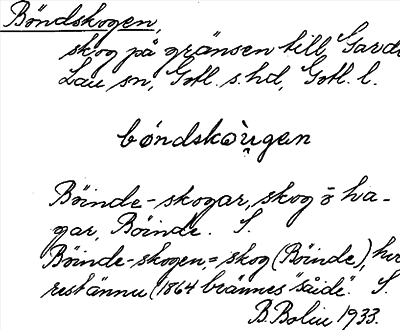 Böndskogen,
skog på gränsen till Garde
Lau sn, Gotl. s. hd, Gotl. l.
böndskòu̯gen
Böinde-skogar, skog o ha-
gar, Böinde. S.
Böinde-skogen, = skog (Böinde), hva
rest ännu (1864 brännes "såide". S.
B. Bolin 1933.